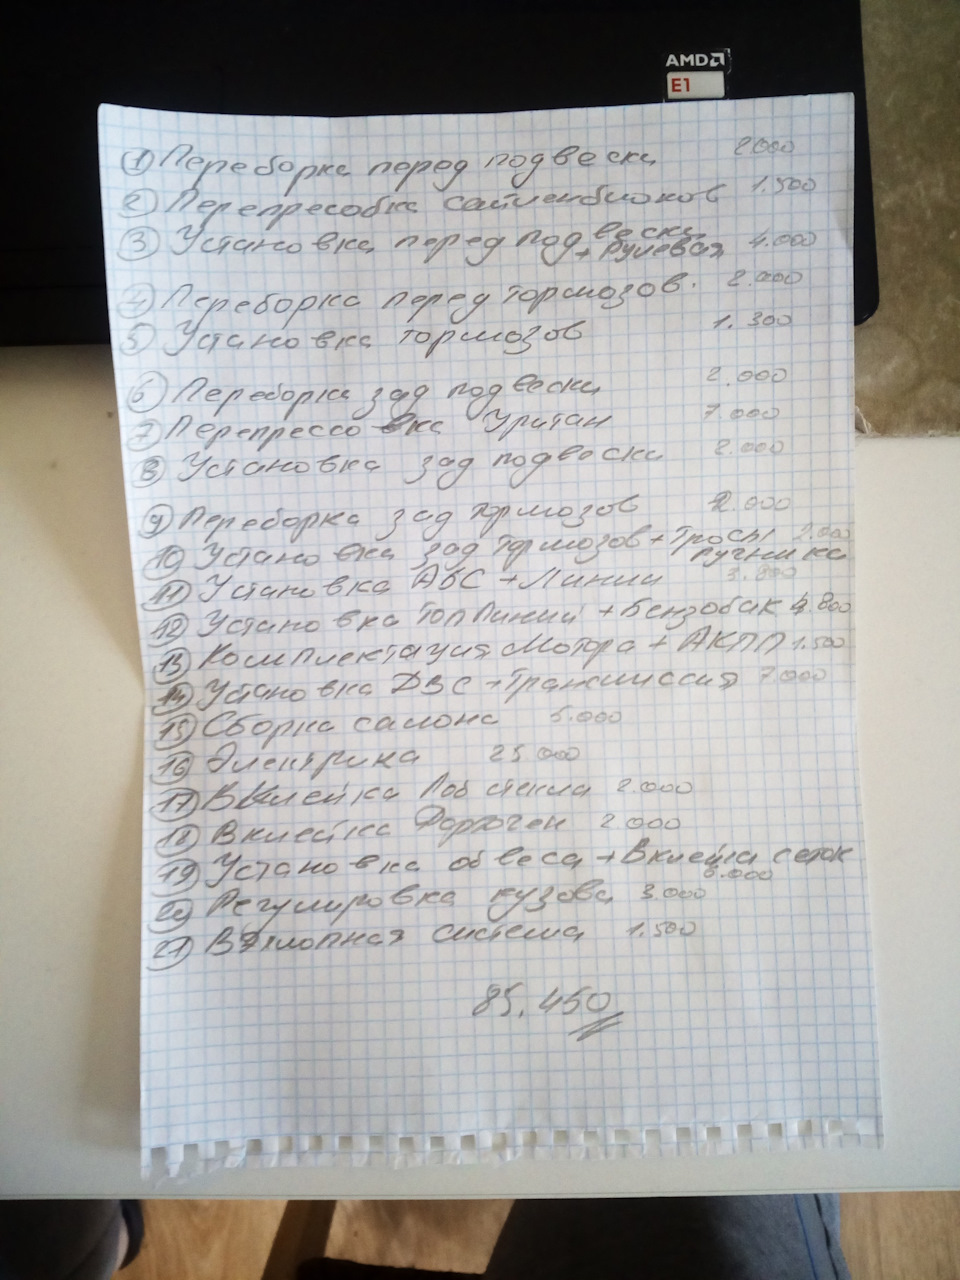 AMD
E1
1 Переборка перед подвески 2000
2 Перепресобка сайленблоков 1.500
3 Установка перед подвески + рулевая 4.000
4 Переборка перед тормозов. 2.000
5 Установка тормозов 1.300
6 Переборка зад подвески 2.000
7 Перепрессовка Уритан 7.000
8 Установка зад подвески 2.000
9 Переборка зад тормозов 2.000
10 Установка зад тормозов + Тросы ручника 2.000
11 Установка АБС + Линии 3.800
12 Установка Топ Линий + Бензобак 4.800
13 Комплектация Мотора + АКПП 1.500
14 Установка ДВС + Трансмиссия 7.000
15 Сборка салона 5.000
16 Электрика 25 000
17 Вклейка Лоб стекла 2.000
18 Вклейка 2 000
19 Установка обвеса + Вклейка сеток 6.000
20 Регулировка кузова 3.000
21 Выхлопная система 1.500
85.450